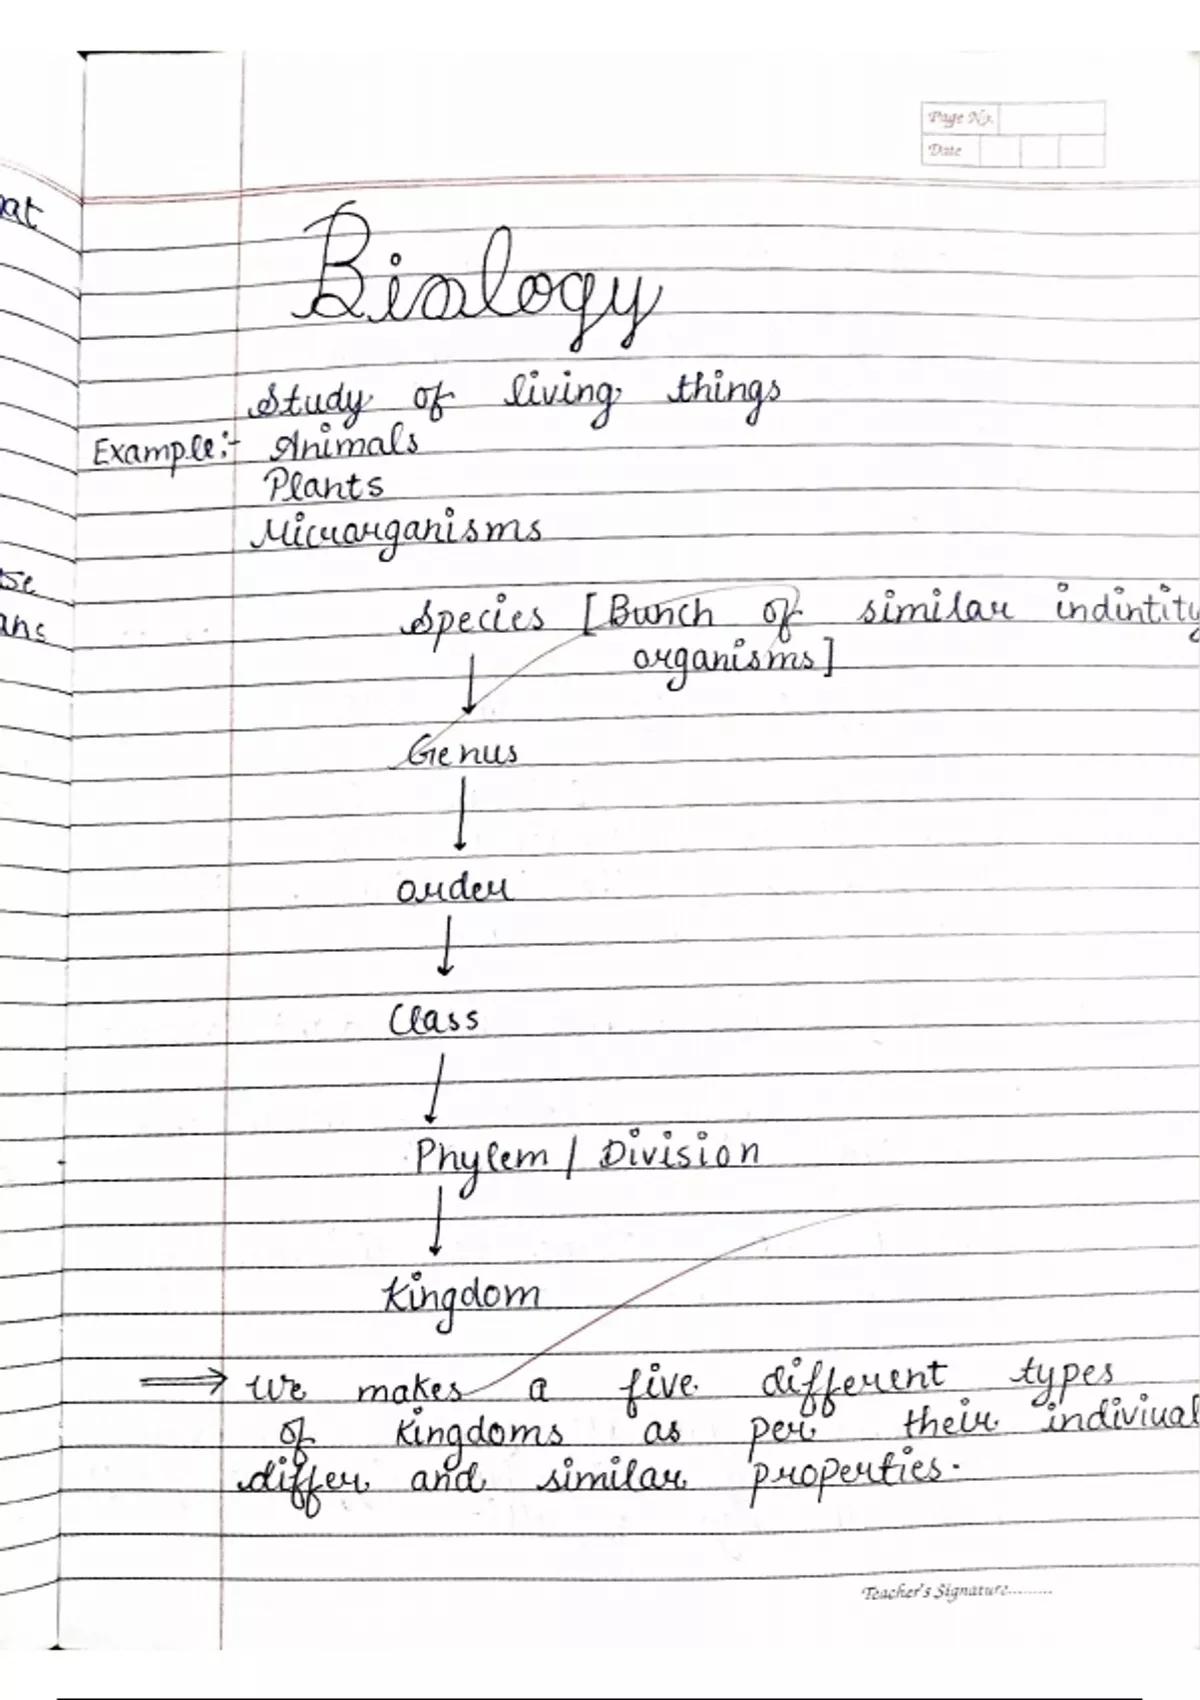 Page No.
Date
oat
Biology
Study of living things
Example:- Animals
Plants
Microrganisms
se
ans
Species [Bunch of similar indintity
organisms]
↓
Genus
↓
order
↓
Class
↓
Phylem / Division
↓
Kingdom
⇒ We makes a five different types
of Kingdoms as per their indiviual
differ and similar properties.
Teacher's Signature.........